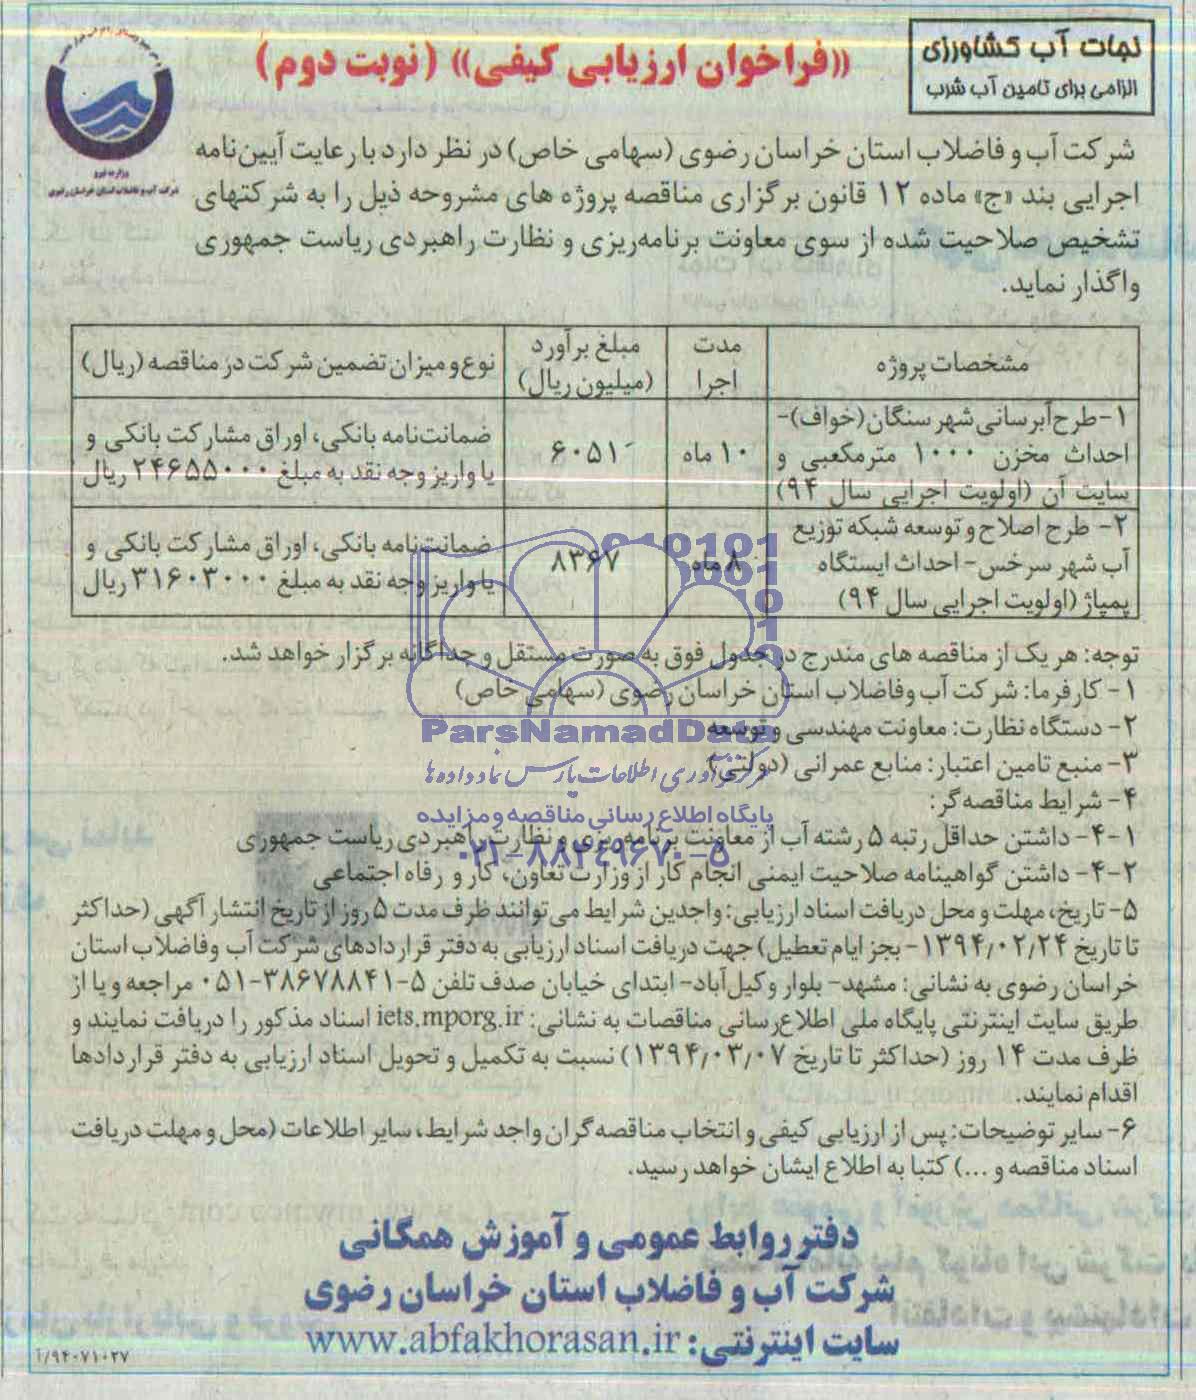 نجات آب کشاورزی
الزامی برای تامین آب شرب
«فراخوان ارزیابی کیفی» (نوبت دوم)
وزارت نیرو
شرکت آب و فاضلاب استان خراسان رضوی
شرکت آب و فاضلاب استان خراسان رضوی (سهامی خاص) در نظر دارد با رعایت آیین‌نامه
اجرایی بند «ج» ماده ۱۲ قانون برگزاری مناقصه پروژه های مشروحه ذیل را به شرکتهای
تشخیص صلاحیت شده از سوی معاونت برنامه‌ریزی و نظارت راهبردی ریاست جمهوری
واگذار نماید.
مشخصات پروژه
مدت
اجرا
مبلغ برآورد
(میلیون ریال)
نوع و میزان تضمین شرکت در مناقصه (ریال)
۱-طرح آبرسانی شهر سنگان(خواف)-
احداث مخزن ۱۰۰۰ مترمکعبی و
سایت آن (اولویت اجرایی سال ۹۴)
۱۰ ماه
۶۰۵۱
ضمانت‌نامه بانکی، اوراق مشارکت بانکی و
یا واریز وجه نقد به مبلغ ۲۴۶۵۵۰۰۰۰ ریال
۲- طرح اصلاح و توسعه شبکه توزیع
آب شهر سرخس- احداث ایستگاه
پمپاژ (اولویت اجرایی سال ۹۴)
۸ ماه
۸۳۶۷
ضمانت‌نامه بانکی، اوراق مشارکت بانکی و
یا واریز وجه نقد به مبلغ ۳۱۶۰۳۰۰۰۰ ریال
توجه: هر یک از مناقصه های مندرج در جدول فوق به صورت مستقل و جداگانه برگزار خواهد شد.
۱- کارفرما: شرکت آب وفاضلاب استان خراسان رضوی (سهامی خاص)
ParsNamadData
۲- دستگاه نظارت: معاونت مهندسی و توسعه
۳- منبع تامین اعتبار: منابع عمرانی (دولتی)
مرکز فرآوری اطلاعات پارس نماد داده‌ها
۴- شرایط مناقصه‌گر:
پایگاه اطلاع رسانی مناقصه و مزایده
۴-۱- داشتن حداقل رتبه ۵ رشته آب از معاونت برنامه‌ریزی و نظارت راهبردی ریاست جمهوری
۰۲۱-۸۸۳۴۹۶۷۰-۵
۴-۲- داشتن گواهینامه صلاحیت ایمنی انجام کار از وزارت تعاون، کار و رفاه اجتماعی
۵- تاریخ، مهلت و محل دریافت اسناد ارزیابی: واجدین شرایط می‌توانند ظرف مدت ۵ روز از تاریخ انتشار آگهی (حداکثر
تا تاریخ ۱۳۹۴/۰۲/۲۴- بجز ایام تعطیل) جهت دریافت اسناد ارزیابی به دفتر قراردادهای شرکت آب وفاضلاب استان
خراسان رضوی به نشانی: مشهد- بلوار وکیل‌آباد- ابتدای خیابان صدف تلفن ۵-۳۸۶۷۸۸۴۱-۰۵۱ مراجعه و یا از
طریق سایت اینترنتی پایگاه ملی اطلاع‌رسانی مناقصات به نشانی: iets.mporg.ir اسناد مذکور را دریافت نمایند و
ظرف مدت ۱۴ روز (حداکثر تا تاریخ ۱۳۹۴/۰۳/۰۷) نسبت به تکمیل و تحویل اسناد ارزیابی به دفتر قراردادها
اقدام نمایند.
۶- سایر توضیحات: پس از ارزیابی کیفی و انتخاب مناقصه‌گران واجد شرایط، سایر اطلاعات (محل و مهلت دریافت
اسناد مناقصه و ...) کتبا به اطلاع ایشان خواهد رسید.
دفتر روابط عمومی و آموزش همگانی
شرکت آب و فاضلاب استان خراسان رضوی
سایت اینترنتی: www.abfakhorasan.ir
۹۴۰۷۱۰۲۷/آ